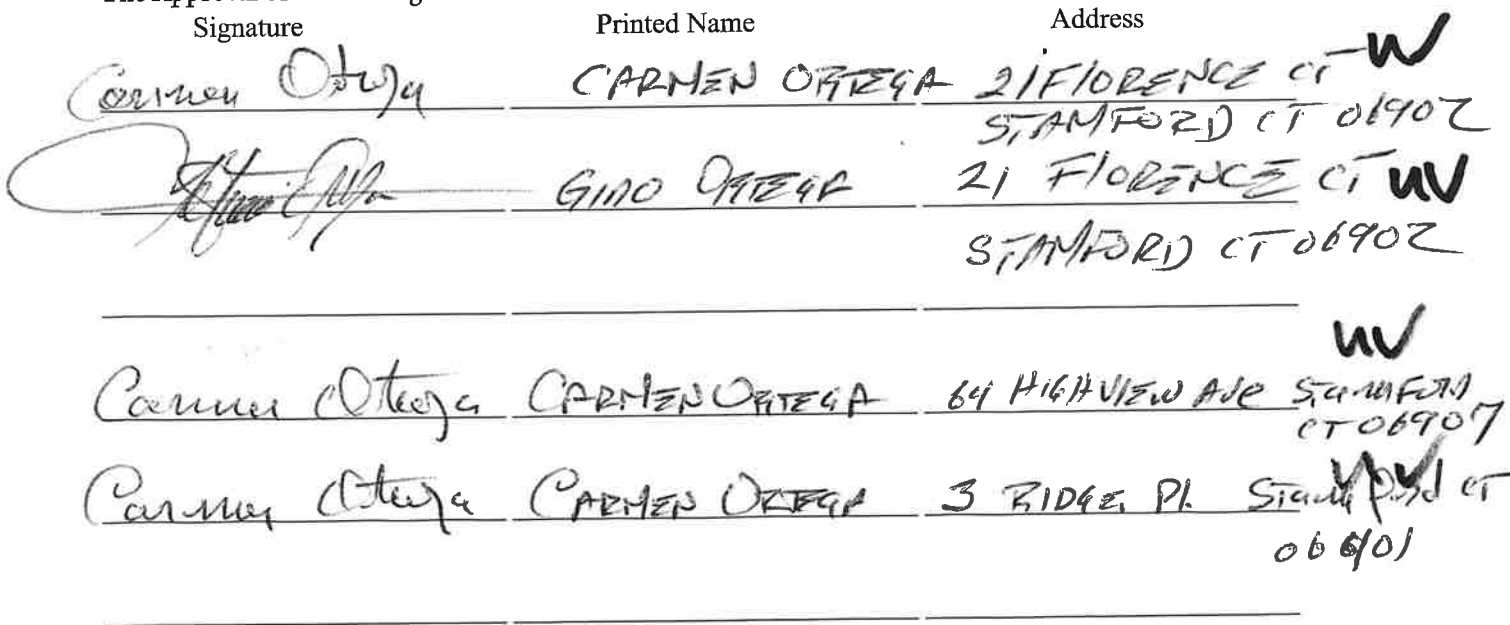 Signature Printed Name Address
Carmen Ortega CARMEN ORTEGA 21 FlORENCE CT
STAMFORD CT 06902
GINO ORTEGA 21 FlORENCE CT UV
STAMFORD CT 06902
UV
Carmen Ortega CARMEN ORTEGA 64 HIGHVIEW AVe StamFORD
CT 06907
Carmen Ortega CARMEN ORTEGA 3 RIDGE Pl. Stamford CT